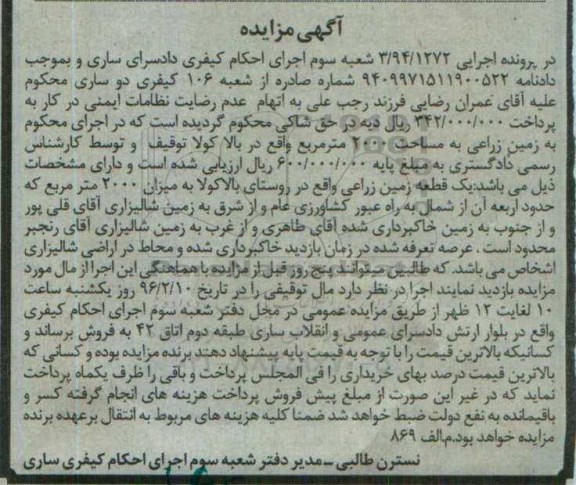 آگهی مزایده
در پرونده اجرایی ۳/۹۴/۱۲۷۲ شعبه سوم اجرای احکام کیفری دادسرای ساری و بموجب
دادنامه ۹۴۰۹۹۷۱۵۱۱۹۰۰۵۲۲ شماره صادره از شعبه ۱۰۶ کیفری دو ساری محکوم
علیه آقای عمران رضایی فرزند رجب علی به اتهام عدم رضایت نظامات ایمنی در کار به
پرداخت ۳۴۲/۰۰۰/۰۰۰ ریال دیه در حق شاکی محکوم گردیده است که در اجرای محکوم
به زمین زراعی به مساحت ۲۰۰۰ مترمربع واقع در بالا کولا توقیف و توسط کارشناس
رسمی دادگستری به مبلغ پایه ۶۰۰/۰۰۰/۰۰۰ ریال ارزیابی شده است و دارای مشخصات
ذیل می باشد:یک قطعه زمین زراعی واقع در روستای بالاکولا به میزان ۲۰۰۰ متر مربع که
حدود اربعه آن از شمال به راه عبور کشاورزی عام و از شرق به زمین شالیزاری آقای قلی پور
و از جنوب به زمین خاکبرداری شده آقای طاهری و از غرب به زمین شالیزاری آقای رنجبر
محدود است . عرصه تعرفه شده در زمان بازدید خاکبرداری شده و محاط در اراضی شالیزاری
اشخاص می باشد. که طالبین میتوانند پنج روز قبل از مزایده با هماهنگی این اجرا از مال مورد
مزایده بازدید نمایند اجرا در نظر دارد مال توقیفی را در تاریخ ۹۶/۲/۱۰ روز یکشنبه ساعت
۱۰ لغایت ۱۲ ظهر از طریق مزایده عمومی در محل دفتر شعبه سوم اجرای احکام کیفری
واقع در بلوار ارتش دادسرای عمومی و انقلاب ساری طبقه دوم اتاق ۴۲ به فروش برساند و
کسانیکه بالاترین قیمت را با توجه به قیمت پایه پیشنهاد دهند برنده مزایده بوده و کسانی که
بالاترین قیمت درصد بهای خریداری را فی المجلس پرداخت و باقی را ظرف یکماه پرداخت
نماید که در غیر این صورت از مبلغ پیش فروش پرداخت هزینه های انجام گرفته کسر و
باقیمانده به نفع دولت ضبط خواهد شد ضمنا کلیه هزینه های مربوط به انتقال برعهده برنده
مزایده خواهد بود.م.الف ۸۶۹
نسترن طالبی ـ مدیر دفتر شعبه سوم اجرای احکام کیفری ساری